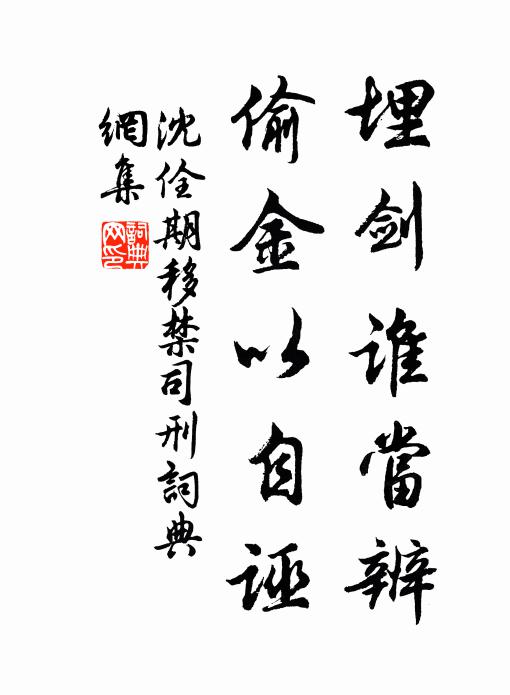 埋剑谁當辨
偷金以自誣
沈佺期移禁司刑詞典
網集
詞典
网印